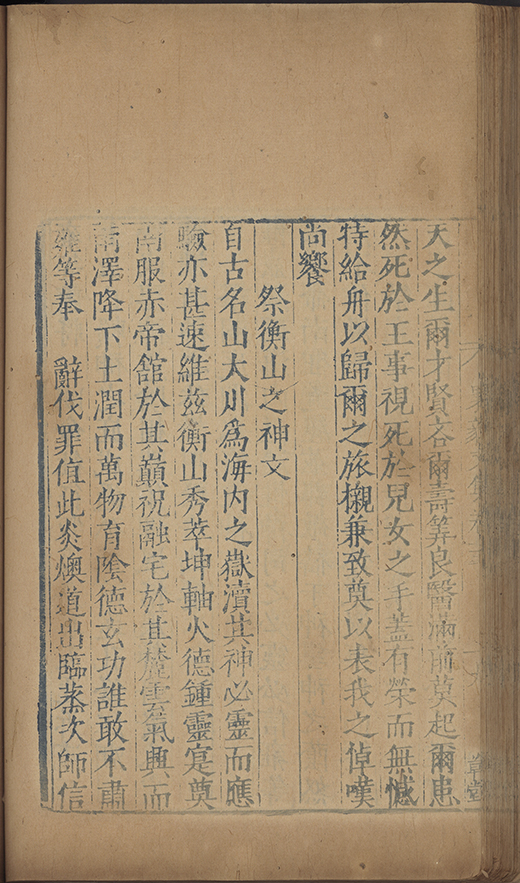 天之生爾才賢吝爾壽筭良醫滿前莫起爾患
然死於王事視死於兒女之手蓋有榮而無憾
特給舟以歸爾之旅櫬兼致奠以表我之悼嘆
尚饗
祭衡山之神文
自古名山大川爲海内之嶽瀆其神必靈而應
驗亦甚速維兹衡山秀萃坤軸火德鍾靈寔奠
南服赤帝館於其巔祝融宅於其麓雲氣興而
雨澤降下土潤而萬物育陰德玄功誰敢不肅
雍等奉 辭伐罪值此炎燠道出臨蒸次師信